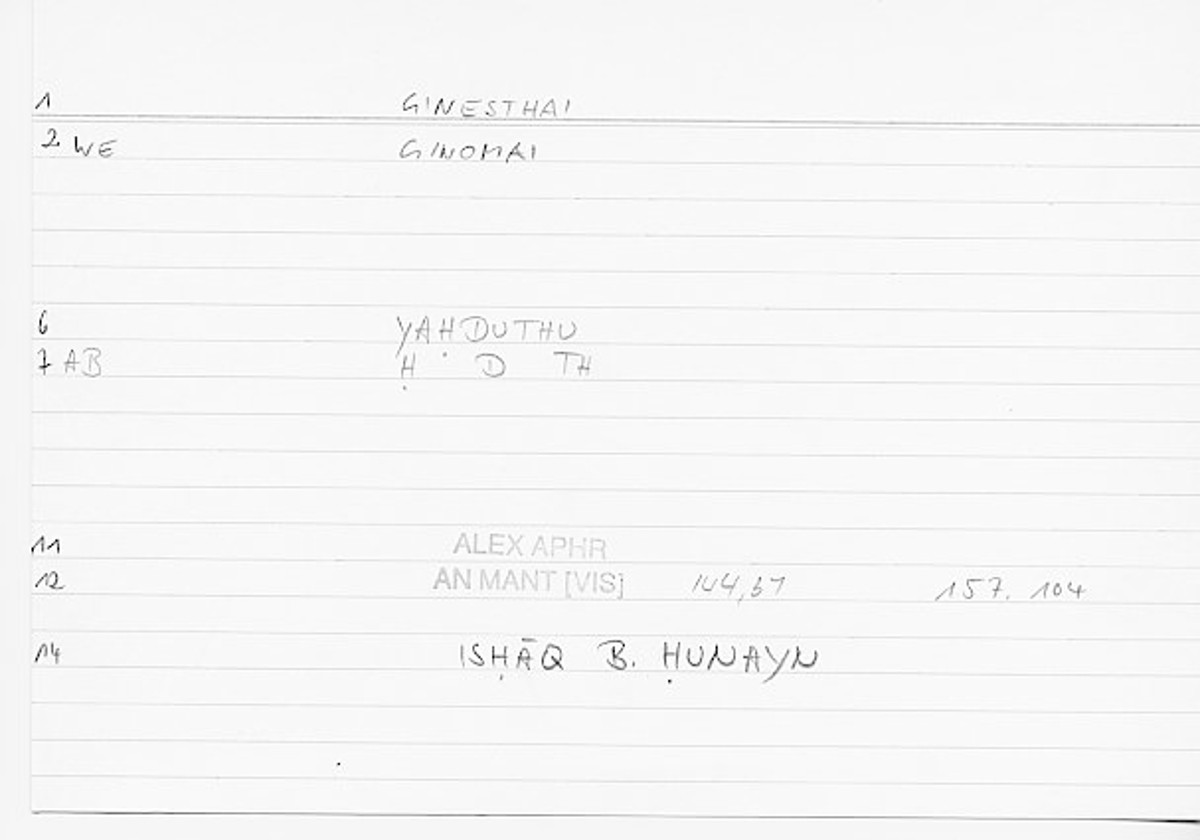 1 GINESTHAI
2 WE GINOMAI
6 YAḤDUTHU
7 AB Ḥ D TH
11 ALEX APHR
12 AN MANT [VIS] 144,37 157. 104
14 ISḤĀQ B. ḤUNAYN